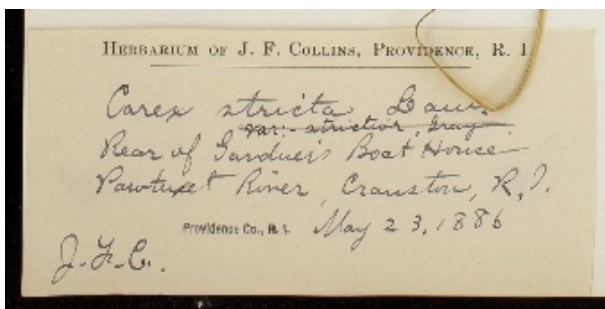 HERBARIUM OF J. F. COLLINS, PROVIDENCE, R. I.
Carex stricta Lam.
var. strictior, Gray
Rear of Gardner's Boat House
Pawtuxet River, Cranston, R.I.
Providence Co., R. I. May 23, 1886
J.F.C.